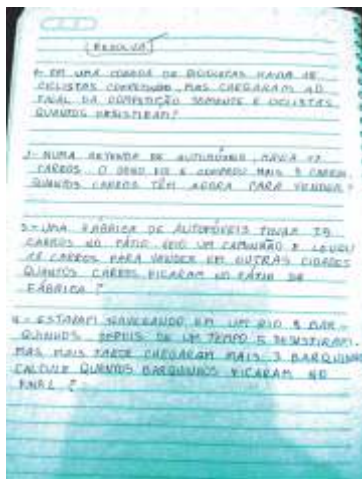 RESOLVA
1- EM UMA CORRIDA DE BICICLETAS HAVIA 18
CICLISTAS COMPETINDO, MAS CHEGARAM AO
FINAL DA COMPETIÇÃO SOMENTE CICLISTAS
QUANTOS DESISTIRAM?
2- NUMA REVENDA DE AUTOMÓVEIS, HAVIA
CARROS. O DONO FOI E COMPROU MAIS CARROS
QUANTOS CARROS TÊM AGORA PARA VENDER?
3- UMA FÁBRICA DE AUTOMÓVEIS TINHA
CARROS NO PÁTIO. VEIO UM CAMINHÃO E LEVOU
CARROS PARA VENDER EM OUTRAS CIDADES
QUANTOS CARROS FICARAM NO PÁTIO DA
FÁBRICA?
4- ESTAVAM NAVEGANDO EM UM RIO 8 BAR-
QUINHOS. DEPOIS DE UM TEMPO 5 DESISTIRAM.
MAS MAIS TARDE CHEGARAM MAIS 3 BARQUINHOS
CALCULE QUANTOS BARQUINHOS FICARAM NO
FINAL?